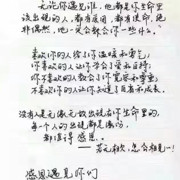 无论你遇见谁，他都是你生命里
该出现的人，都有原因，都有使命，绝
非偶然，他一定会教会你一些什么。
喜欢你的人给你温暖和勇气；
你喜欢的人让你学会爱和自持；
你不喜欢的人教会你宽容和尊重；
不喜欢你的人让你知道自省和成长。
没有人是无缘无故出现在你生命里的
每一个人的出现都是缘份，
都值得感恩。
——若无相欠，怎会相见！
感恩遇见你们